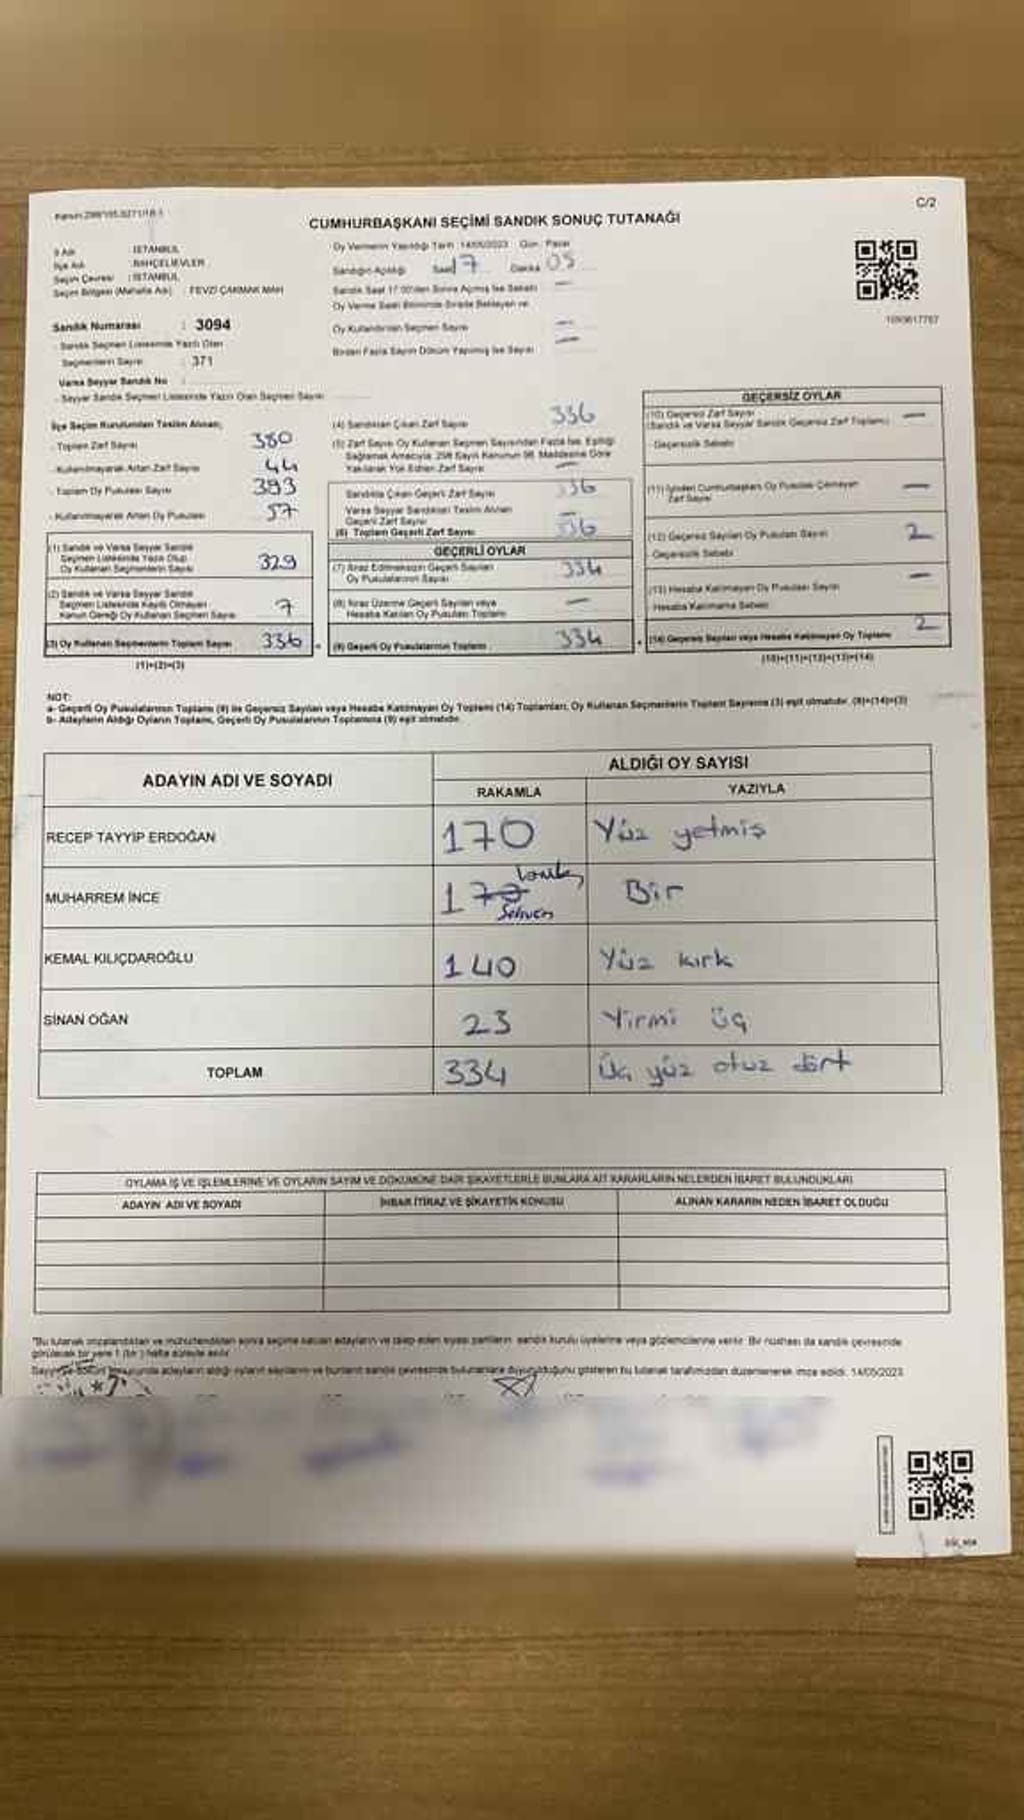 C/2
CUMHURBAŞKANI SEÇİMİ SANDIK SONUÇ TUTANAĞI
İl Adı : İSTANBUL
İlçe Adı : BAHÇELİEVLER
Seçim Çevresi : İSTANBUL
Seçim Bölgesi (Mahalle Adı) : FEVZİ ÇAKMAK MAH
Oy Vermenin Yapıldığı Tarih : 14/05/2023 Gün : Pazar
Sandığın Açıldığı Saat 17 Dakika 05
Sandık Saat 17:00'den Sonra Açılmış İse Sebebi —
Oy Verme Saati Bitiminde Sırada Bekleyen ve
Oy Kullandırılan Seçmen Sayısı —
Birden Fazla Sayım Döküm Yapılmış İse Sayısı —
Sandık Numarası : 3094
- Sandık Seçmen Listesinde Yazılı Olan
Seçmenlerin Sayısı : 371
Varsa Seyyar Sandık No :
- Seyyar Sandık Seçmen Listesinde Yazılı Olan Seçmen Sayısı
İlçe Seçim Kurulundan Teslim Alınan;
- Toplam Zarf Sayısı 380
- Kullanılmayarak Artan Zarf Sayısı 44
- Toplam Oy Pusulası Sayısı 393
- Kullanılmayarak Artan Oy Pusulası 57
(1) Sandık ve Varsa Seyyar Sandık
Seçmen Listesinde Yazılı Olup
Oy Kullanan Seçmenlerin Sayısı 329
(2) Sandık ve Varsa Seyyar Sandık
Seçmen Listesinde Kayıtlı Olmayan
Kanun Gereği Oy Kullanan Seçmen Sayısı 7
(3) Oy Kullanan Seçmenlerin Toplam Sayısı 336
(1)+(2)=(3)
(4) Sandıktan Çıkan Zarf Sayısı 336
(5) Zarf Sayısı Oy Kullanan Seçmen Sayısından Fazla İse, Eşitliği
Sağlamak Amacıyla, 298 Sayılı Kanunun 98. Maddesine Göre
Yakılarak Yok Edilen Zarf Sayısı —
Sandıkta Çıkan Geçerli Zarf Sayısı 336
Varsa Seyyar Sandıktan Teslim Alınan
Geçerli Zarf Sayısı —
(6) Toplam Geçerli Zarf Sayısı 336
GEÇERLİ OYLAR
(7) İtiraz Edilmeksizin Geçerli Sayılan
Oy Pusulalarının Sayısı 334
(8) İtiraz Üzerine Geçerli Sayılan veya
Hesaba Katılan Oy Pusulası Toplamı —
(9) Geçerli Oy Pusulalarının Toplamı 334
GEÇERSİZ OYLAR
(10) Geçersiz Zarf Sayısı —
(Sandık ve Varsa Seyyar Sandık Geçersiz Zarf Toplamı)
- Geçersizlik Sebebi
(11) İçinden Cumhurbaşkanı Oy Pusulası Çıkmayan
Zarf Sayısı —
(12) Geçersiz Sayılan Oy Pusula Sayısı 2
- Geçersizlik Sebebi
(13) Hesaba Katılmayan Oy Pusulası Sayısı —
Hesaba Katılmama Sebebi
(14) Geçersiz Sayılan veya Hesaba Katılmayan Oy Toplamı 2
(10)+(11)+(12)+(13)=(14)
NOT:
a- Geçerli Oy Pusulalarının Toplamı (9) ile Geçersiz Sayılan veya Hesaba Katılmayan Oy Toplamı (14) Toplamları, Oy Kullanan Seçmenlerin Toplam Sayısına (3) eşit olmalıdır. (9)+(14)=(3)
b- Adayların Aldığı Oyların Toplamı, Geçerli Oy Pusulalarının Toplamına (9) eşit olmalıdır.
ADAYIN ADI VE SOYADI
ALDIĞI OY SAYISI
RAKAMLA YAZIYLA
RECEP TAYYİP ERDOĞAN 170 Yüz yetmiş
MUHARREM İNCE 1 Bir
KEMAL KILIÇDAROĞLU 140 Yüz kırk
SİNAN OĞAN 23 Yirmi üç
TOPLAM 334 Üç yüz otuz dört
OYLAMA İŞ VE İŞLEMLERİNE VE OYLARIN SAYIM VE DÖKÜMÜNE DAİR ŞİKAYETLERLE BUNLARA AİT KARARLARIN NELERDEN İBARET BULUNDUKLARI
ADAYIN ADI VE SOYADI İHBAR İTİRAZ VE ŞİKAYETİN KONUSU ALINAN KARARIN NEDEN İBARET OLDUĞU
"Bu tutanak imzalandıktan ve mühürlendikten sonra seçime katılan adayların ve talep eden siyasi partilerin sandık kurulu üyelerine veya gözlemcilerine verilir. Bir nüshası da sandık çevresinde
görülecek bir yere 1 (bir) hafta süreyle asılır.
adayların aldığı oyların sayılarını ve bunların sandık çevresinde bulunanlara duyurulduğunu gösteren bu tutanak tarafımızdan düzenlenerek imza edildi. 14/05/2023